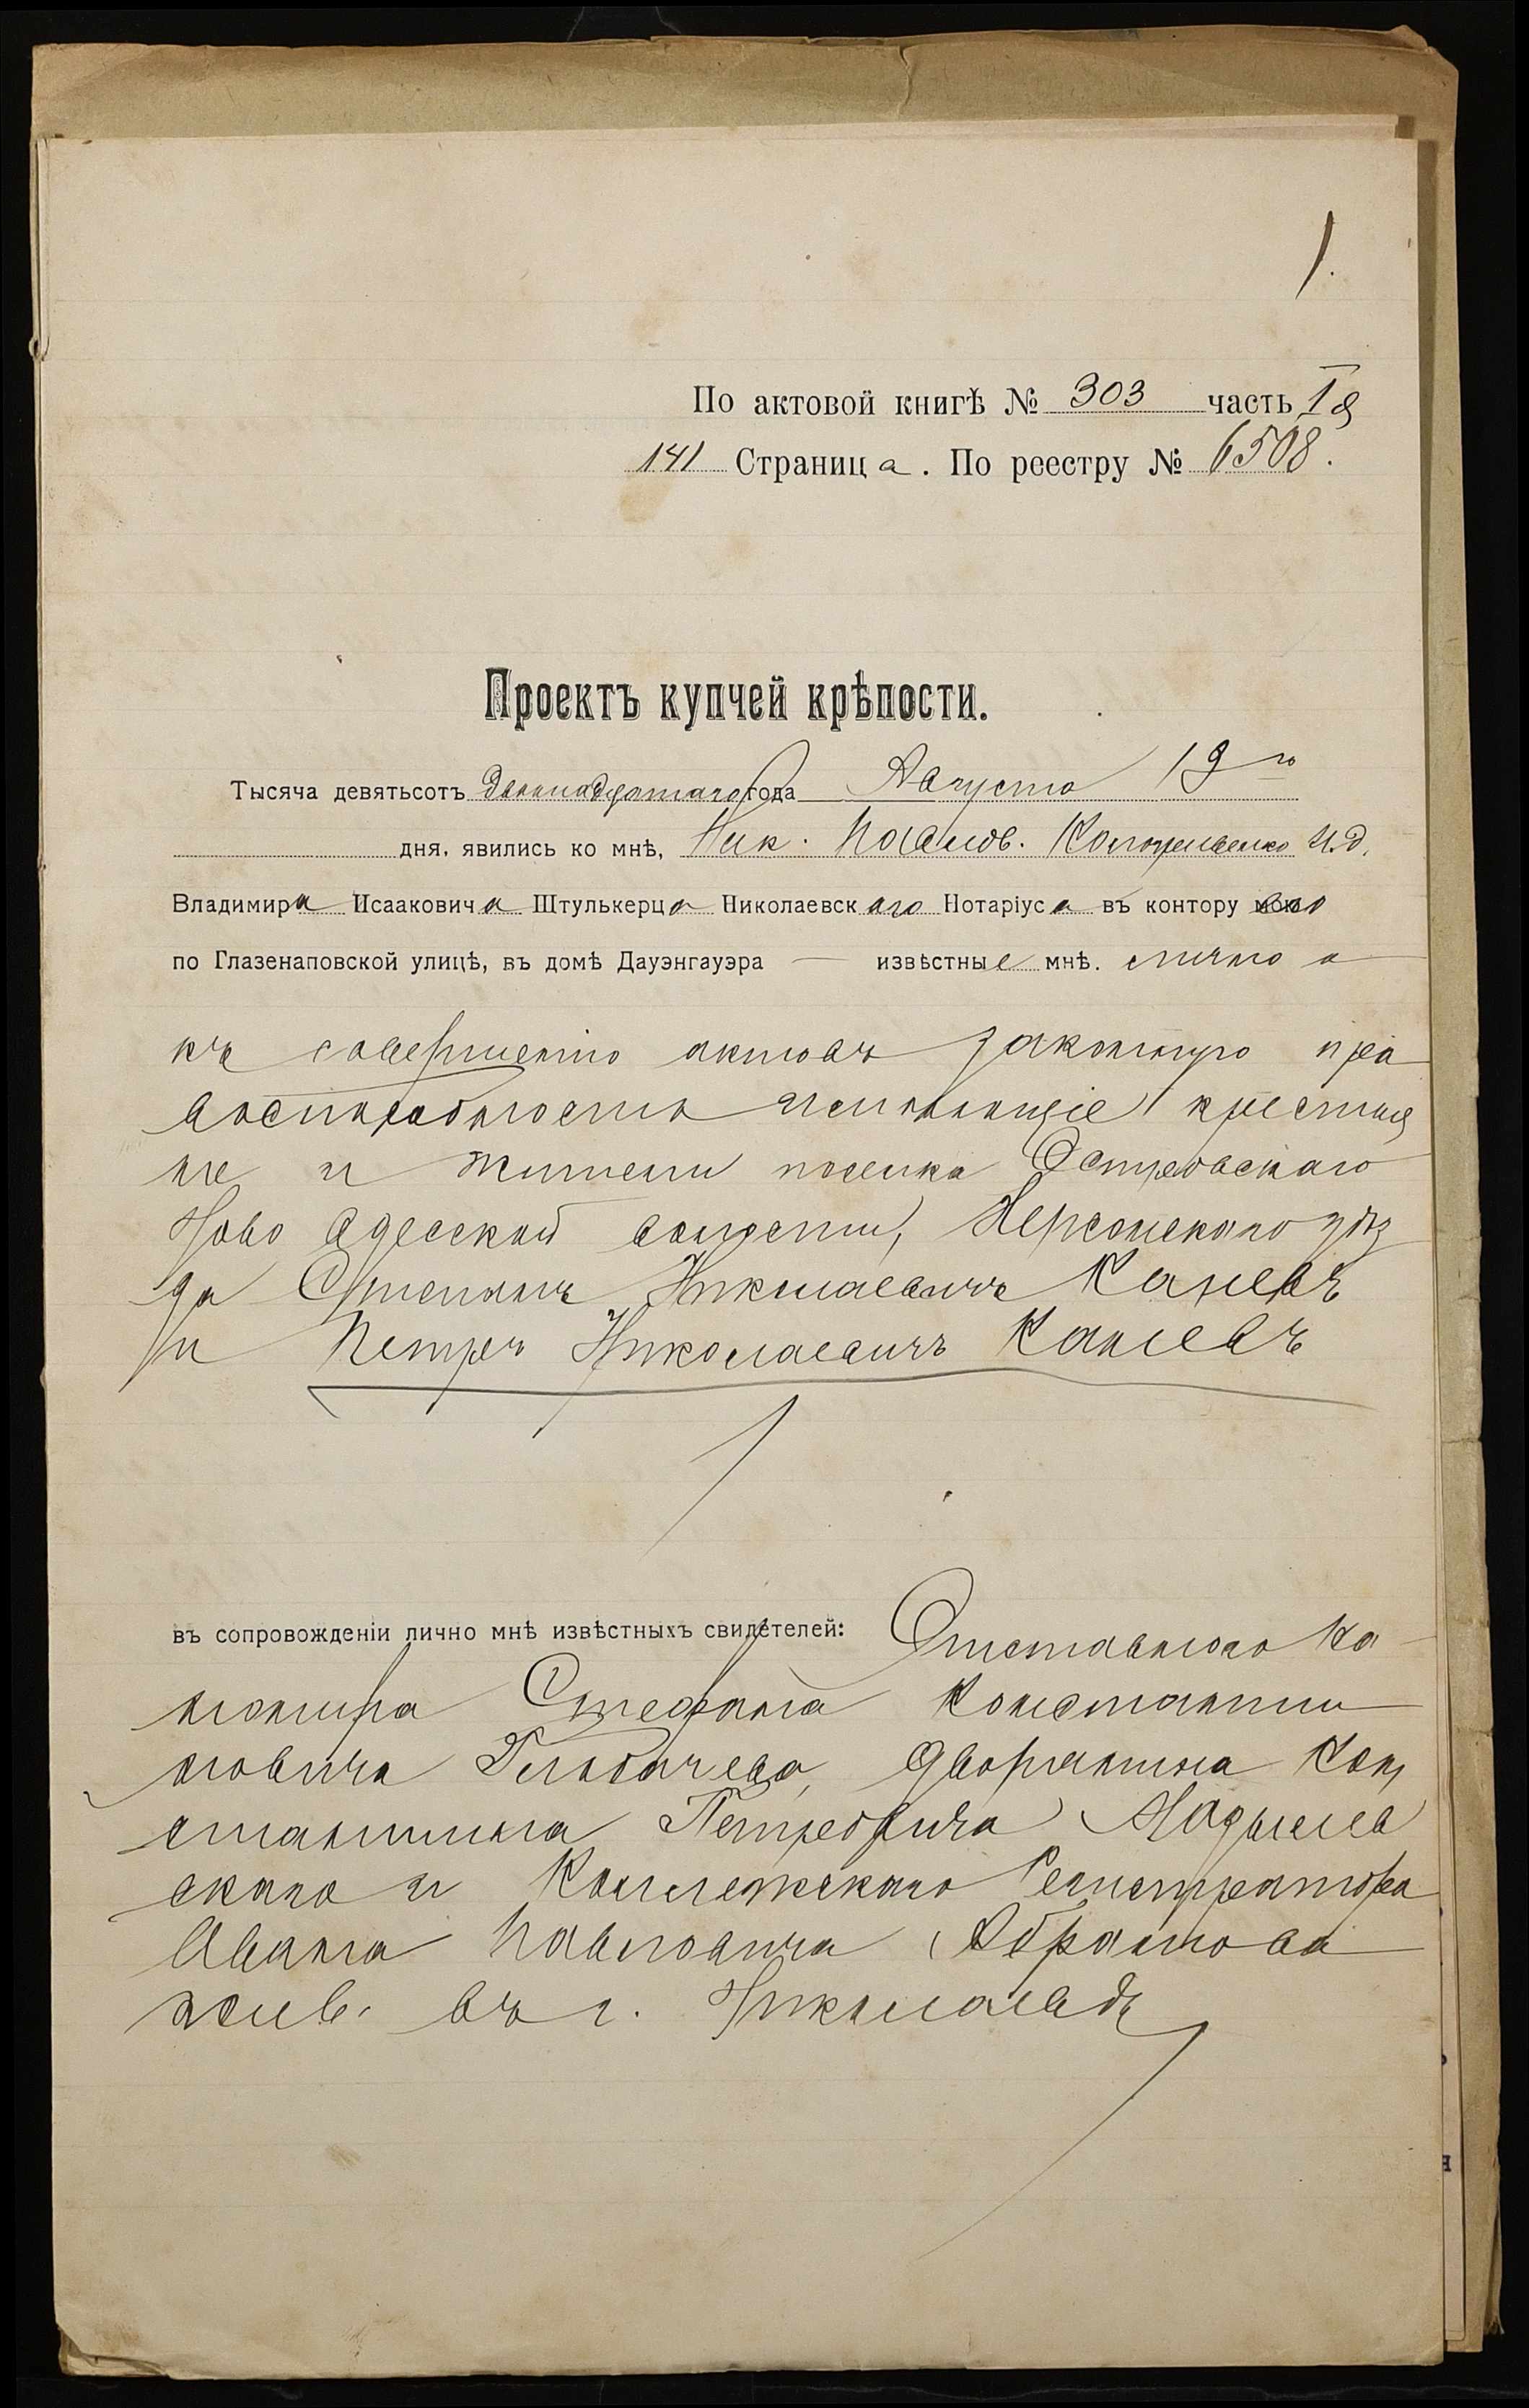 1.
По актовой книгѣ № 303 часть I я
141 Страница. По реестру № 6508.
Проектъ купчей крѣпости.
Тысяча девятьсотъ двѣнадцатаго года Августа 19 го
дня, явились ко мнѣ, Ник. И.д.
Владимира Исааковича Штулькерца Николаевскаго Нотаріуса въ контору его
по Глазенаповской улицѣ, въ домѣ Дауэнгауэра — извѣстные мнѣ. лично и
къ совершенію актовъ законную пра
воспособность имѣющіе крестья
не и жители поселка Островскаго
Ново Одесской волости, Херсонскаго уѣз
да Степанъ Николаевичъ Каневъ
и Петръ Николаевичъ Каневъ
въ сопровожденіи лично мнѣ извѣстныхъ свидѣтелей: Отставного ка
нонира Стефана Константи
новича дворянина Кон
стантина Петровича
скаго и Коллежскаго Регистратора
Ивана Павловича Абрамова
жив. въ г. Николаевѣ